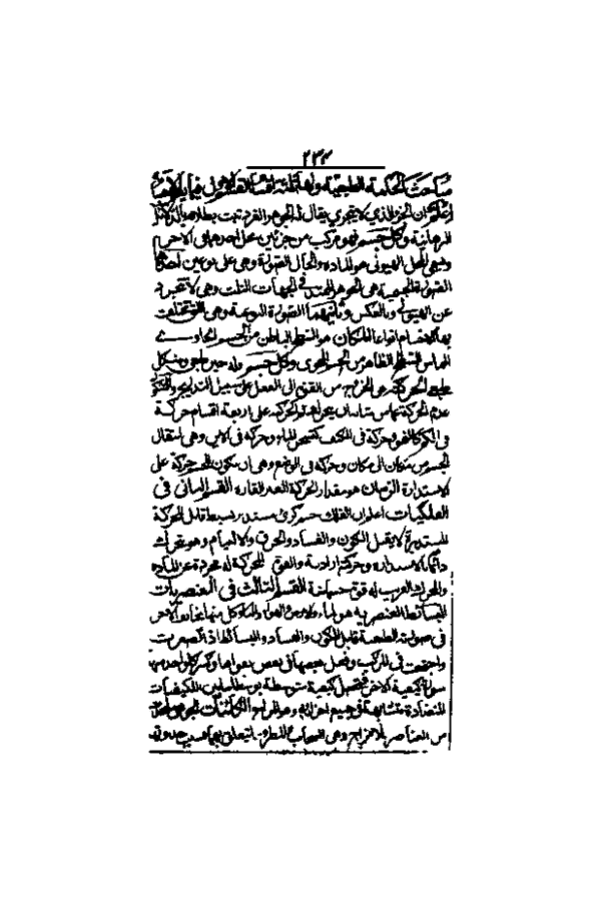 ٢٣٣
مباحث الحكمة الطبيعية ولها ثلثة اقسام القسم الاول فيما يعم الاجسام
اعلم ان الجزء الذي لا يتجزى يقال له الجوهر الفرد ثبت بطلانه بالدلائل
البرهانية وكل جسم فهو مركب من جزئين يحل احدهما في الاخر
ويسمى المحل الهيولى هو المادة والحال الصورة وهي على نوعين احدهما
الصورة الجسمية هي الجوهر الممتد في الجهات الثلث وهي لا تتجرد
عن الهيولى وبالعكس وثانيهما الصورة النوعية وهي التي تختلف
بها الاجسام انواعا المكان هو السطح الباطن من الجسم الحاوي
المماس للسطح الظاهر من الجسم المحوى وكل جسم وله حيز طبعي وشكل
طبيعي الحركة هي الخروج من القوة الى الفعل على سبيل التدريج والسكون
عدم الحركة عما من شانه ان يتحرك ثم الحركة على اربعة اقسام حركة
في الكم كالنمو وحركة في الكيف كتسخن الماء وحركة في الاين وهي انتقال
الجسم من مكان الى مكان وحركة في الوضع وهي ان تكون للجسم حركة على
الاستدارة الزمان هو مقدار الحركة الغير القارة القسم الثاني في
الفلكيات اعلم ان الفلك جسم كرى مستدير بسيط قابل للحركة
المستديرة لا يقبل الكون والفساد والخرق والالتيام وهو يتحرك
دائما بالاستدارة وحركته ارادية والقوة المحركة له مجردة عن المادة
والمحرك القريب له قوة جسمانية القسم الثالث في العنصريات
البسائط العنصرية هو الماء والارض والهواء والنار وكل منها يخالف الاخر
في صورته الطبيعية قابل للكون والفساد والبسائط اذا تصغرت
واجتمعت في المركب وفعل بعضها في بعض بقواها وكسر كل واحد منها
سورة كيفية الاخر فيحصل كيفية متوسطة بين الكيفيات
المتضادة متشابهة في جميع اجزائه وهو المزاج الكائنات
من العناصر بلا مزاج وهي السحاب والمطر وما يتعلق بهما سبب حدوثه